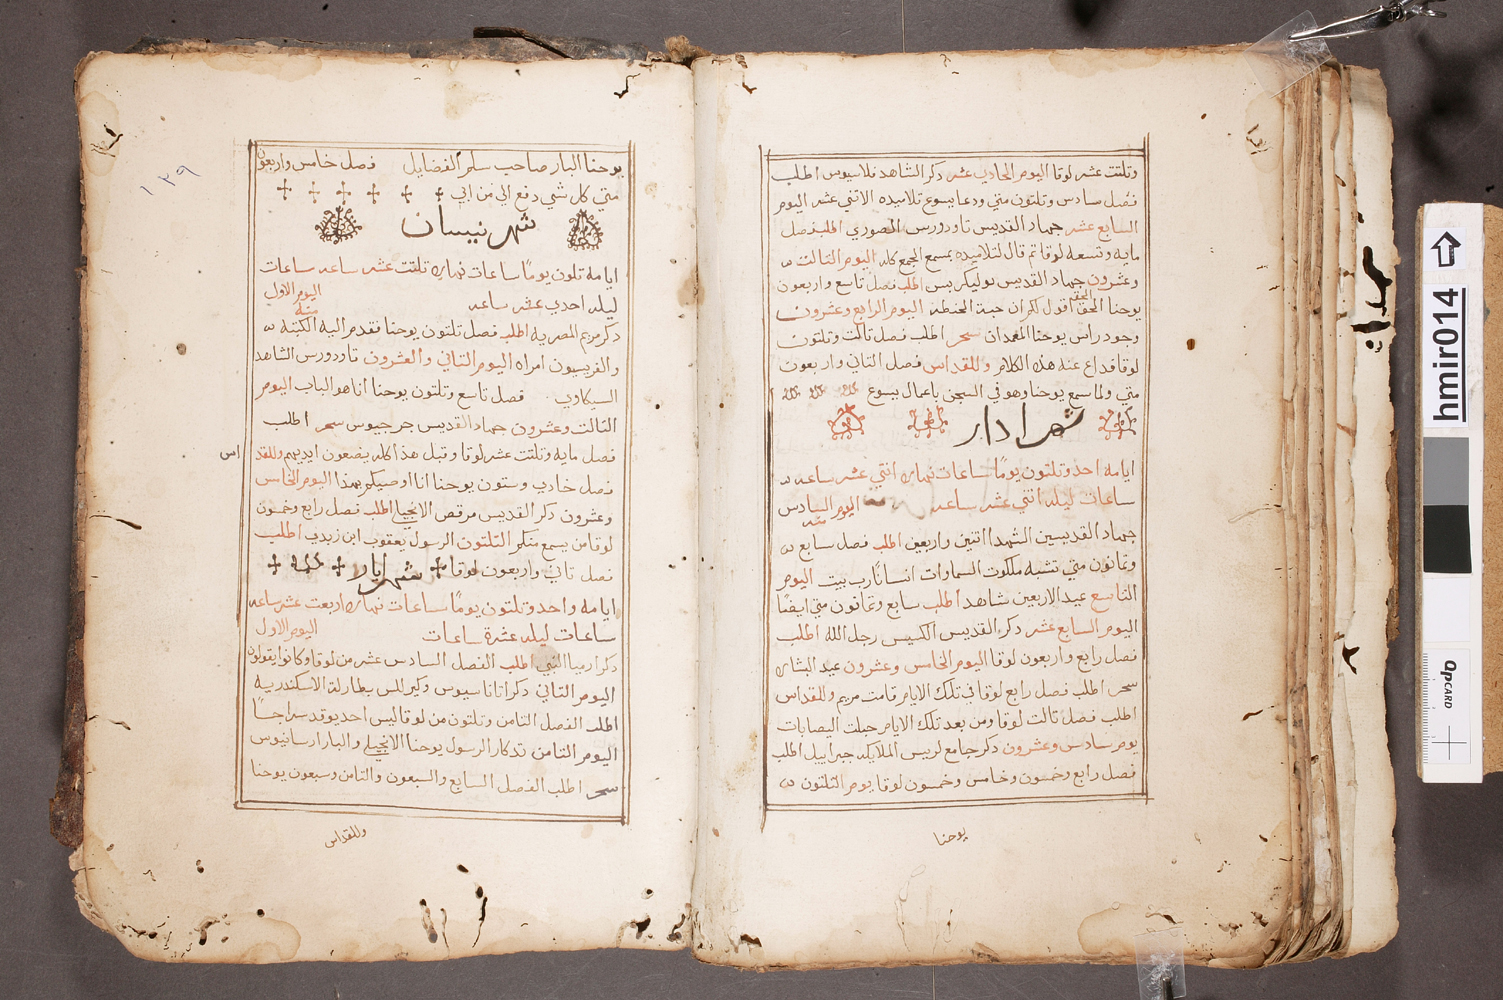 وثلثت عشر لوقا اليوم الحادي عشر دكر الشاهد فلاسيوس اطلب
فصل سادس وتلتون متي ودعا يسوع تلاميده الاتني عشر اليوم
السابع عشر جهاد القديس تاودورس الصوري اطلب فصل
مايه وتسعه لوقا تم قال لتلاميده بمسمع الجمع كله اليوم التالت
وعشرون جهاد القديس بوليكربس اطلب فصل تاسع واربعون
يوحنا الحق الحق اقول لكم ان حبة الحنطه اليوم الرابع وعشرون
وجود راس يوحنا المعمدان سحر اطلب فصل تالت وتلتون
لوقا فداع عنه هذه الكلام وللقداس فصل التاني واربعون
متي ولما سمع يوحنا وهو في السجن باعمال يسوع
شهر ادار
ايامه احد وتلتون يومًا ساعات نهاره اتني عشر ساعه
ساعات ليله اتني عشر ساعه اليوم السادس
منه
جهاد القديسين الشهدا اتنين واربعين اطلب فصل سابع
وتمانون متي تشبه ملكوت السماوات انسانًا رب بيت اليوم
التاسع عيد الاربعين شاهد اطلب سابع وتمانون متي ايضًا
اليوم السابع عشر دكر القديس الكسيس رجل الله اطلب
فصل رابع واربعون لوقا اليوم الخامس وعشرون عيد البشاره
سحر اطلب فصل رابع لوقا في تلك الايام قامت مريم وللقداس
اطلب فصل تالت لوقا ومن بعد تلك الايام حبلت اليصابات
يوم سادس وعشرون دكر جامع لرييس الملايكه جبراييل اطلب
فصل رابع وخمسون وخامس وخمسون لوقا يوم التلتون
يوحنا
١٣٩
يوحنا البار صاحب سلم الفضايل فصل خامس واربعون
متي كل شي دفع الي من ابي
شهر نيسان
ايامه تلون يومًا ساعات نهاره تلتت عشر ساعه ساعات
ليله احدي عشر ساعه اليوم الاول
منه
دكر مريم المصريه اطلب فصل تلتون يوحنا فقدم اليه الكتبه
والفريسيون امراه اليوم التاني والعشرون تاودورس الشاهد
السيكاوي فصل تاسع وتلتون يوحنا انا هو الباب اليوم
التالت وعشرون جهاد القديس جرجيوس سحر اطلب
فصل مايه وتلتت عشر لوقا وقبل هذا كله يضعون ايديهم وللقد
اس
فصل حادي وستون يوحنا انا اوصيكم بهذا اليوم الخامس
وعشرون دكر القديس مرقص الانجيلي اطلب فصل رابع وخمسون
لوقا من يسمع منكم التلتون الرسول يعقوب ابن زبدي اطلب
فصل تاني واربعون لوقا شهر ايار
ايامه واحد وتلتون يومًا ساعات نهاره اربعت عشر ساعه
ساعات ليله عشرة ساعات اليوم الاول
دكر ارميا النبي اطلب الفصل السادس عشر من لوقا وكانوا يقولون
اليوم التاني دكر اتاناسيوس وكيرللس بطاركة الاسكندريه
اطلب الفصل التامن وتلتون من لوقا ليس احد يوقد سراجًا
اليوم التامن تدكار الرسول يوحنا الانجيلي والبار ارسانيوس
سحر اطلب الفصل السابع والسبعون والتامن وسبعون يوحنا
وللقداس
hmir014
QPCARD